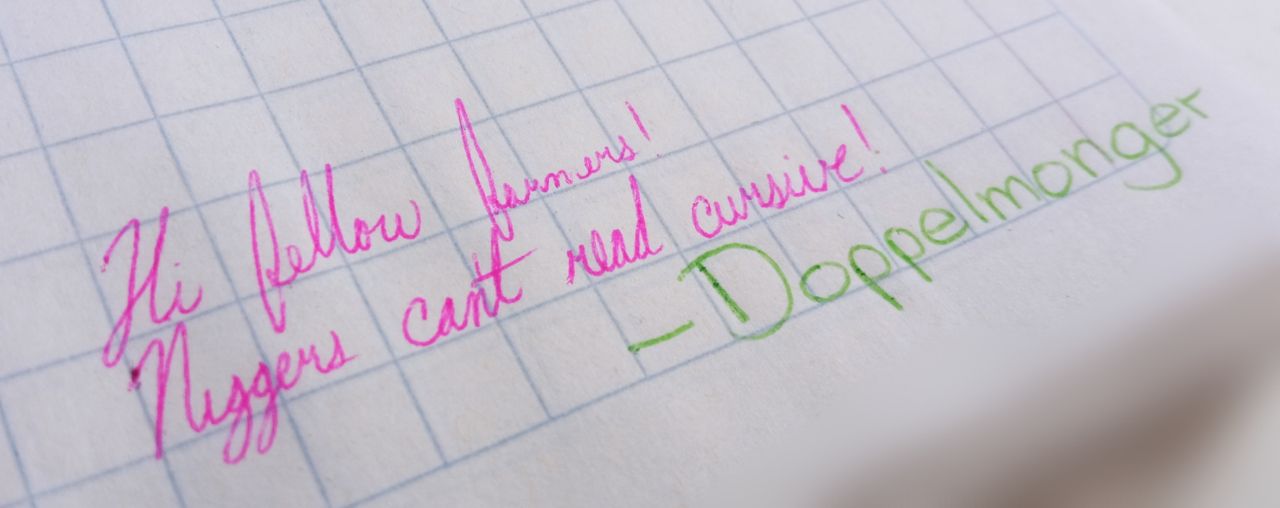 Hi fellow farmers!
Niggers can't read cursive!
-Doppelmonger